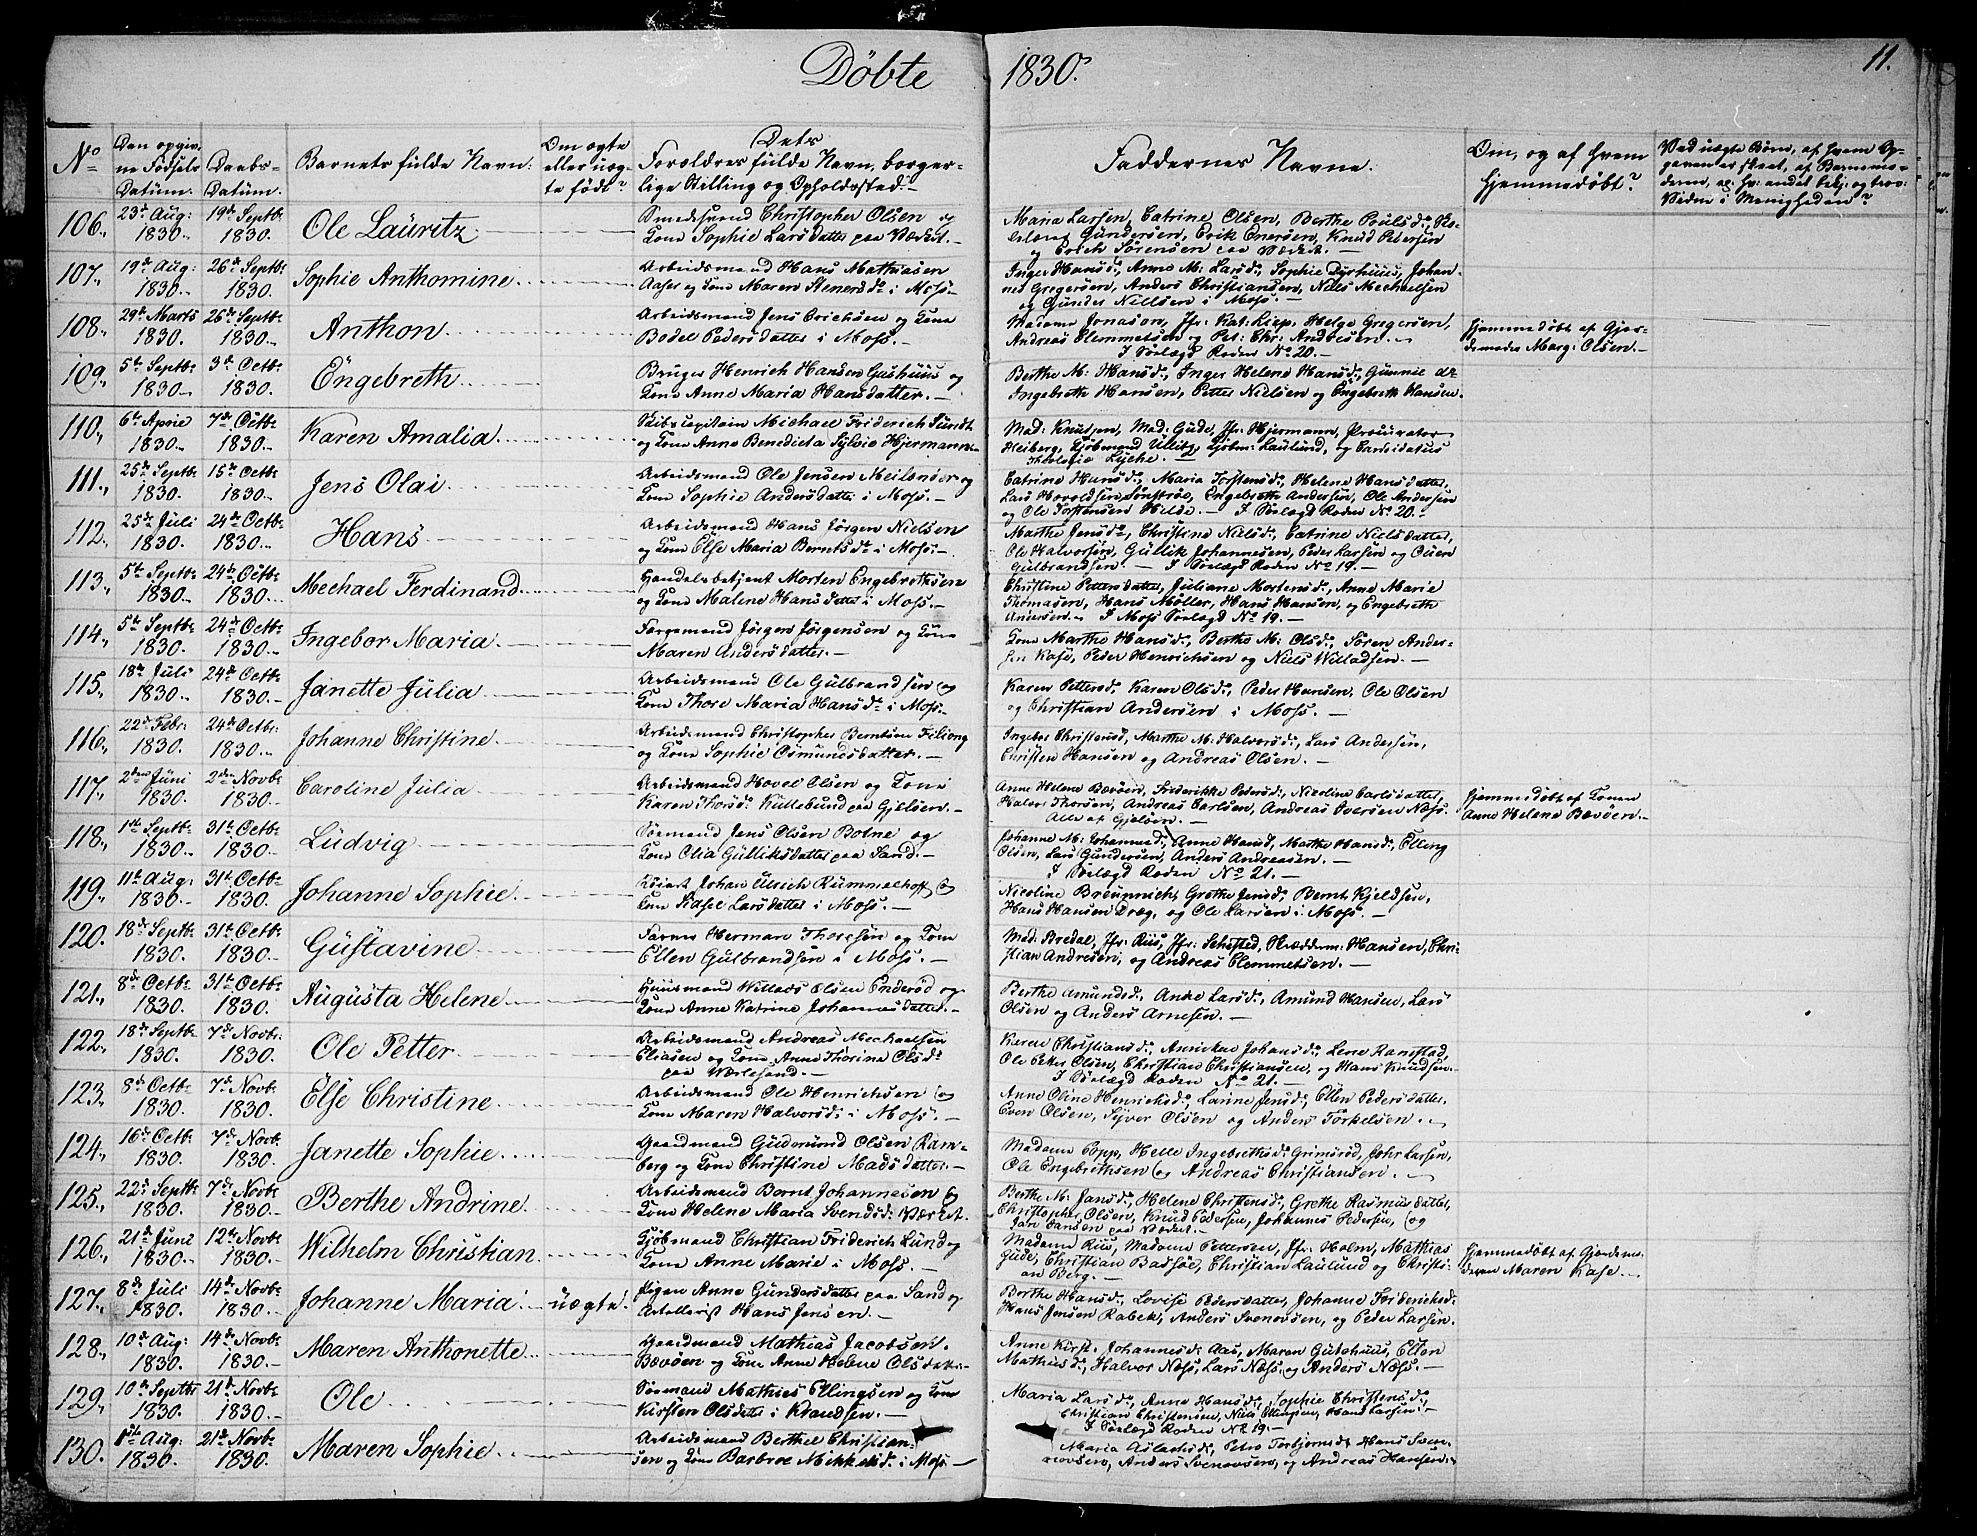 Döbte 1830. 11.
No
Den opgiv-
ne Födsels
Datum.
Daabs-
Datum.
Barnets fulde Navn.
Om ægte
eller uæg-
te födt?
Dets
Forældres fulde Navn, borger-
lige Stilling og Opholdssted.
Faddernes Navne.
Om, og af hvem
hjemmedöbt?
106., 23de Aug: 1830. 19de Septbr 1830. Ole Lauritz.
Smedsvend Christopher Olsen og
Kone Sophie Larsdatter paa Værket.
Maria Larsen, Catrine Olsen, Berthe Poulsdr,
Gundersen, Erik Enersen, Knud Pedersen
og Erich Sörensen paa Værket.
107., 19de Aug: 1830. 26de Septbr 1830. Sophie Anthomine.
Arbeidsmand Hans Mathiasen
Aaser og Kone Maren Stenersdr i Moss.
Inger Hansdr, Anne M: Larsdr, Sophie Dyrhuus, Johan-
nes Gregersen, Anders Christiansen, Niels Mechaelsen
og Gunder Nielsen i Moss.
108., 29de Marts 1830. 26de Septbr 1830. Anthon
Arbeidsmand Jens Erichsen og Kone
Bodel Pedersdatter i Moss.
Madame Jonason, Jfr: Kat: Liep, Helge Gregersen,
Andreas Clemmetsen og Pet: Chr: Andresen.
I Sölægd Roden No 20.
Hjemmedöbt af Gjor-
demoder Marg: Olsen.
109., 5te Septbr 1830. 3de Octbr 1830. Engebreth
Bruger Henrich Hansen Gashuus og
Kone Anne Maria Hansdatter.
Berthe M: Hansdr, Inger Helene Hansdr, Gunnie dr
Ingebreth Hansen, Petter Nielsen og Engebreth Hansen.
110., 6te April 1830. 7de Octbr 1830. Karen Amalia.
Skibscapitain Michael Friderich Sundt
og Kone Anne Benedicta Sylvia Hjermann.
Mad: Knutzen, Mad: Gude, Jfr: Hjermann, Procurator
Heiberg, Kjöbmand Ullitz, Kjöbm: Laulund, og Candidatus
Theologia Lyche.
111., 25de Septbr 1830. 15de Octbr 1830. Jens Olai.
Arbeidsmand Ole Jensen Meilender og
Kone Sophie Andersdatter i Moss.
Catrine Hansdr, Maria Torstensdr, Helene Hansdatter,
Lars Hovoldsen, Engebrethe Andersen, Ole Andersen
og Ole Torstensen Hilde. I Sölægd Roden No 20.
112., 25de Juli 1830. 24de Octbr 1830. Hans
Arbeidsmand Hans Jörgen Nielsen
og Kone Else Maria Berntsdr i Moss.
Marthe Jensdr, Christine Nielsdr, Catrine Nielsdatter,
Ole Halvorsen, Gullik Johannesen, Peder Larsen og Ouen
Gulbrandsen. I Sölægd Roden No 19.
113., 5te Septbr 1830. 24de Octbr 1830. Mechael Ferdinand
Handelsbetjent Morten Engebrethsen
og Kone Malene Hansdatter i Moss.
Christine Pettersdatter, Juliane Mortensdr, Anne Marie
Thomasen, Hans Möller, Hans Hansen, og Engebreth
Andersen. I Moss Sölægd No 19.
114., 5te Septbr 1830. 24de Octbr 1830. Ingebor Maria.
Færgemand Jörgen Jörgensen og Kone
Maren Andersdatter.
Kone Marthe Hansdr, Berthe M: Olsdr, Sören Ander-
sen Kase, Peder Henrichsen og Niels Willadsen.
115., 18de Juli 1830. 24de Octbr 1830. Janette Julia
Arbeidsmand Ole Gulbrandsen og
Kone Thore Maria Hansdr i Moss.
Karen Pettersdr, Karen Olsdr, Peder Hansen, Ole Olsen
og Christian Andersen i Moss.
116., 22de Febr: 1830. 24de Octbr: 1830. Johanne Christine.
Arbeidsmand Christopher Berntsen
og Kone Sophie Osmundsdatter.
Ingebor Christensd, Marthe M: Halvorsdr, Lars Andersen,
Christen Hansen og Andreas Olsen.
117., 2den Juni 1830. 2den Novbr 1830. Caroline Julia
Arbeidsmand Hovel Olsen og Kone
Karen Thorsdr Kullebund paa Gjelöen.
Anne Helene Bævöen, Friderikke Pedersdr, Nicoline Carlsdatter,
Halvor Thorsen, Andreas Carlsen, Andreas Iversen Næss.
Alle af Gjelöen.
Hjemmedöbt af Konen
Anne Helene Bævöen.
118., 1ste Septbr 1830. 31te Octbr 1830. Ludvig
Sömand Jens Olsen Botne og
Kone Olia Gulliksdatter paa Sand.
Johanne M: Johannesd, Anne Hansd, Marthe Hansdr, Elling
Olsen, Lars Gundersen, Anders Andreasen.
I Sölægd Roden No 21.
119., 11te Aug: 1830. 31te Octbr 1830. Johanne Sophie.
Johan Ulrich Rummelhoff og
Kone Larsdatter i Moss.
Nicoline Breunnich, Grethe Jensdr, Bernt Kjeldsen,
Hans Hansen Dræg, og Ole Larsen i Moss.
120. 18de Septbr 1830. 31te Octbr 1830. Gustavine
Farver Herman Thoresen og Kone
Ellen Gulbrandsen i Moss.
Mad: Bredal, Jfr: Riis, Jfr: Sehested, Skrædderm: Hansen, Chri-
stian Andresen, og Andreas Clemmetsen.
121., 8de Octbr 1830. 31te Octbr 1830. Augusta Helene
Huusmand Willads Olsen Enderöd og
Kone Anne Katrine Johannesdatter.
Berthe Amundsdr, Anne Larsdr, Amund Hansen, Lars
Olsen og Anders Arnesen.
122., 18de Septbr 1830. 7de Novbr. 1830. Ole Petter
Arbeidsmand Andreas Mechaelsen
Eliasen og Kone Anne Thorine Olsdr
paa Værlesand.
Karen Christiansdr, Anniken Johansdr, Lene Ramstad,
Ole Peter Olsen, Christian Christiansen, og Hans Knudsen.
I Sölægd Roden No 21.
123., 8de Octbr 1830. 7de Novbr 1830. Else Christine
Arbeidsmand Ole Henrichsen og
Kone Maren Halvorsdr i Moss.
Anne Oline Henriksdr, Larine Jensdr, Ellen Pedersdatter,
Even Olsen, Syver Olsen og Anders Torkelsen.
124., 16de Octbr 1830. 7de Novbr 1830. Janette Sophie
Gaardmand Gudmund Olsen Ram-
berg og Kone Christine Madsdatter.
Madame Popp, Helle Ingebrethsdr Grimsröd, Johr Larsen,
Ole Engebrethsen og Andreas Christiansen.
125., 22de Septbr 1830. 7de Novbr 1830. Berthe Andrine.
Arbeidsmand Bernt Johannesen og
Kone Helene Maria Svendsdr Værket.
Berthe M: Jansdr, Helene Christensdr, Grethe Rasmusdatter,
Christopher Olsen, Knud Pedersen, Johannes Pedersen, og
Jan Jansen paa Værket.
126., 21de Juni 1830. 12te Novbr 1830. Wilhelm Christian.
Kjöbmand Christian Friderich Lund og
Kone Anne Marie i Moss.
Madame Riis, Madame Pettersen, Jfr: Holm, Mathias
Gude, Christian Bassöe, Christian Laulund og Christi-
an Berg.
Hjemmedöbt af Gjordemo-
deren Maren Kase.
127., 8de Juli 1830. 14de Novbr 1830. Johanne Maria. uægte.
Pigen Anne Gundersdatter paa Sand og
Artellerist Hans Jensen.
Berthe Hansdr, Lovise Pedersdatter, Johanne Friderichsd:
Hans Jensen Rabek, Anders Svenovsen, og Peder Larsen.
128., 10de Aug: 1830. 14de Novbr 1830. Maren Anthonette
Gaardmand Mathias Jacobsen
Bævöen og Kone Anne Helene Olsdatter
Anne Kirst: Johannesdr Aas, Maren Gutehuus, Ellen
Mathisdr, Halvor Næss, Lars Næss og Anders Næss.
129., 10de Septbr 1830. 21de Novbr 1830. Ole
Sömand Mathies Ellingsen og Kone
Kirsten Olsdatter i Krandsen.
Maria Larsdr, Anne Hansdr, Sophie Christensdr,
Christian Christensen, Niels Ellingsen, Hans Larsen.
I Sölægd Roden No 19.
130. 1ste Aug: 1830. 21de Novbr 1830. Maren Sophie
Arbeidsmand Berthel Christian-
sen og Kone Barbroe Mikkelsdr i Moss
Maria Aslachsdr, Petro Torbjornsdr Hans Sven-
novsen, Anders Svenovsen, og Andreas Hansen.